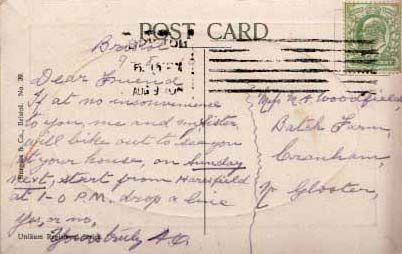 POST CARD
BRISTOL
AUG 9
Bristol
Dear Friend
If at no inconvenience
to you, me and my sister
will bike out to see you
at your house, on Sunday
next, start from Haresfield
at 1-0 P.M. drop a line
Yes, or no,
Yours truly
& Co., Bristol. No. 39.
Woodfield,
Batch Farm,
Cranham,
Nr Gloster,